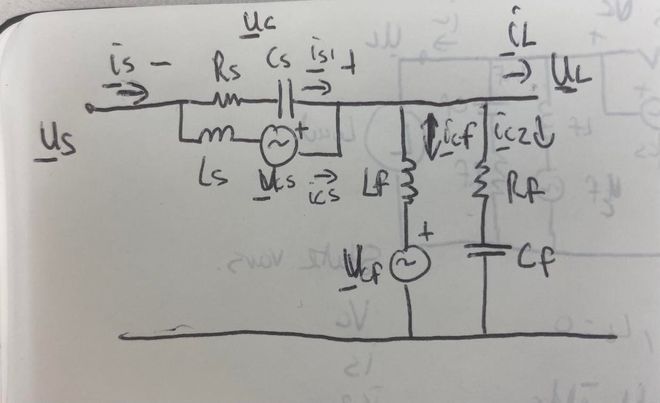 uc
is - Rs Cs is1 + iL
uL
us
Ls ucs + ics Lf icf ic2 Rf
ucf + Cf